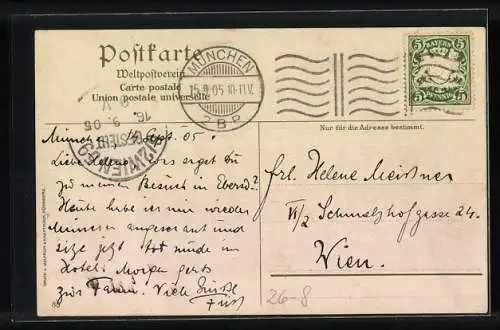 Postkarte
Weltpostverein
Carte postale
Union postale universelle
MÜNCHEN
15.9.05 10-11 V.
2 B.P.
BAYERN
5 5
5 5
PFENNIG
16. 9. 05
BESTELLT
WIEN
Nur für die Adresse bestimmt.
München 14 Sept. 05.
Liebe Helene! Was sagst Du
zu meinem Besuch in Ebersd.?
Heute habe ich mir wieder
München angeschaut und
sitze jetzt
Hotel. Morgen geht's
Viele Grüße
Frl. Helene Meistner
VI/2 Schmalzhofgasse 24.
Wien.
26-8